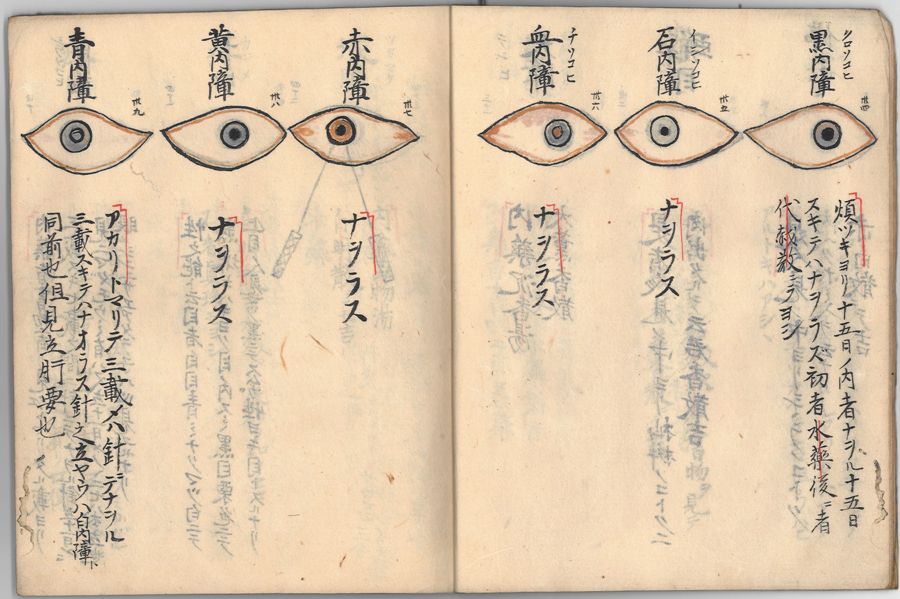 クロソコヒ
黒内障
卅四
煩ツキヨリ十五日ノ内者ナヲル十五日
スキテハナヲラズ初者水薬後ニ者
代赦散ニテヨシ
イシソコヒ
石内障
卅五
ナヲラス
チソコヒ
血内障
卅六
ナヲラス
赤内障
卅七
ナヲラス
黄内障
卅八
ナヲラス
青内障
卅九
アカリトマリテ三載〆ハ針デナヲル
三載スキテハナオラス針之立ヤウハ白内障ト
同前也但見立肝要也